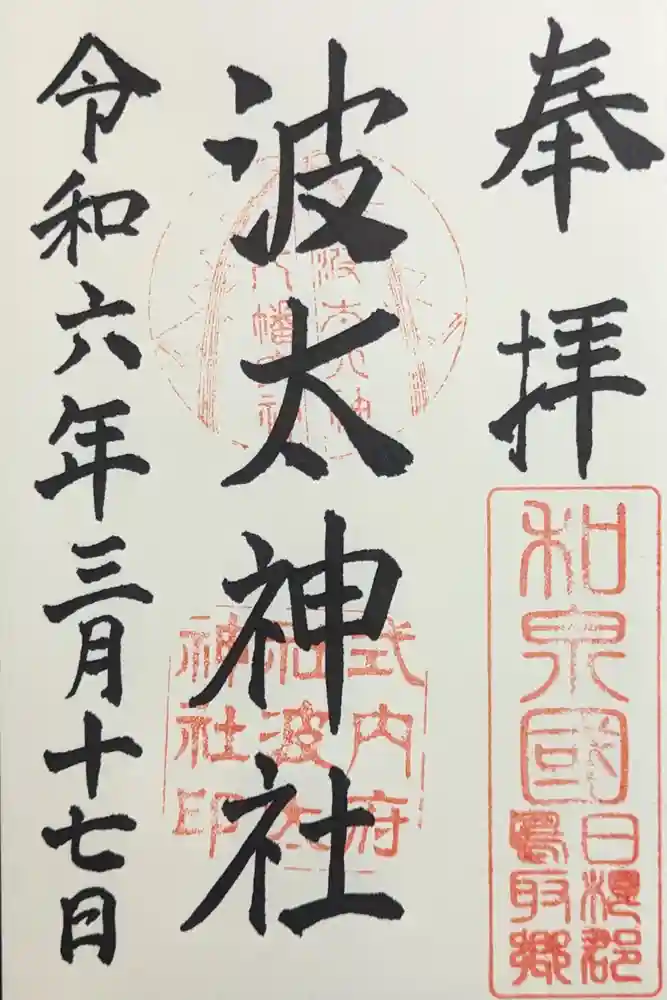 奉拝
和泉國
日根郡
鳥取郷
波太神社
波太神社
八幡神社
式内府
社波太
神社印
令和六年三月十七日